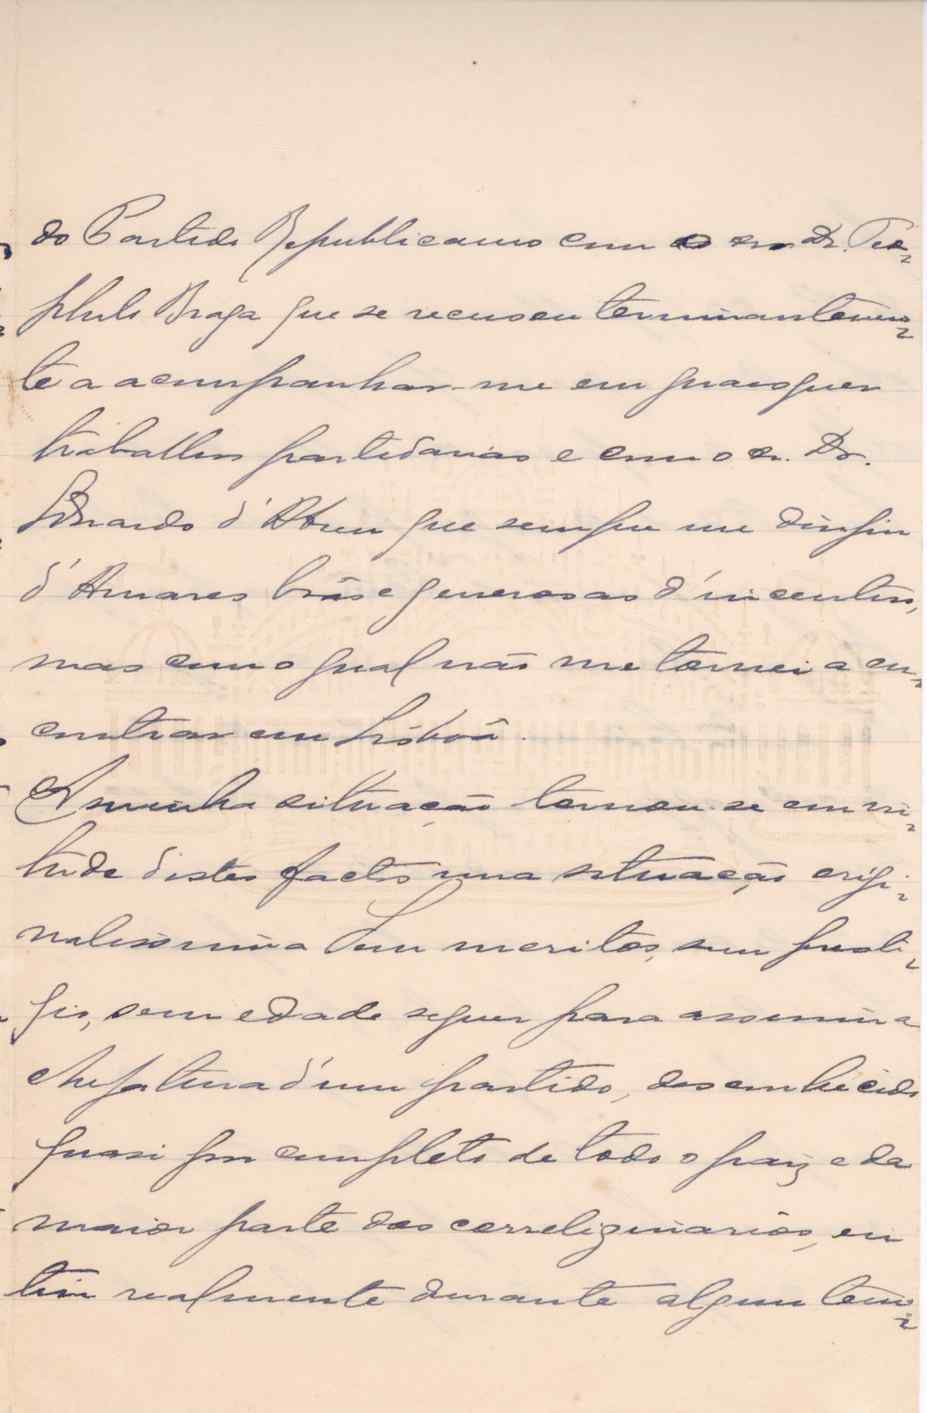 do Partido Republicano com o sr. Dr. Teo-
philo Braga que se recusou terminantemen-
te a acompanhar-me em quaesquer
trabalhos partidarios e com o sr. Dr.
Eduardo d'Abreu que sempre me dirigiu
d'Amares bôas e generosas d'incentivo,
mas com o qual não me tornei a en-
contrar em Lisboa.
A minha situação tornou-se em vir-
tude d'estes factos uma situação origi-
nalissima. Sem meritos, sem presti-
gio, sem edade sequer para assumir a
chefatura d'um partido, desconhecido
quasi por completo de todo o paiz e da
maior parte dos correligionarios, eu
fui realmente durante algum tem-